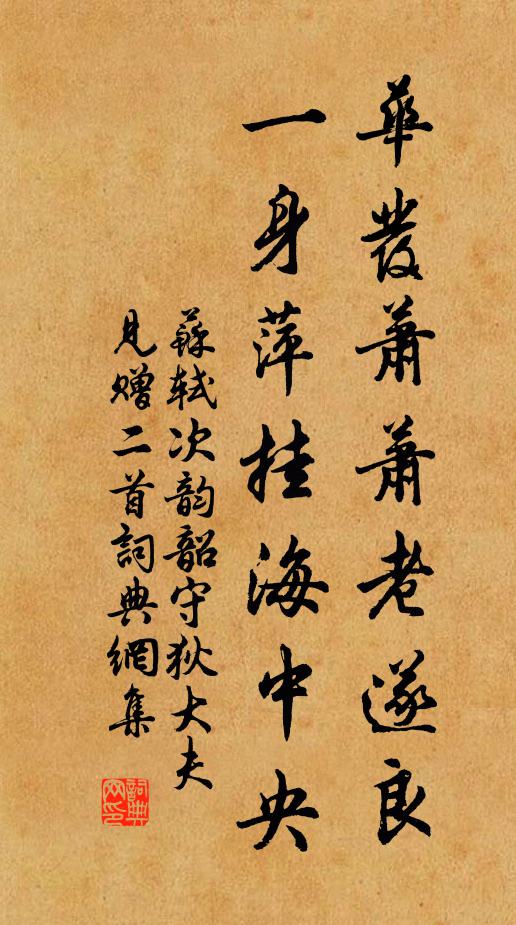 華發蕭蕭老遂良
一身萍挂海中央
蘇軾次韵韶守狄大夫
見赠二首詞典網集
詞典网印